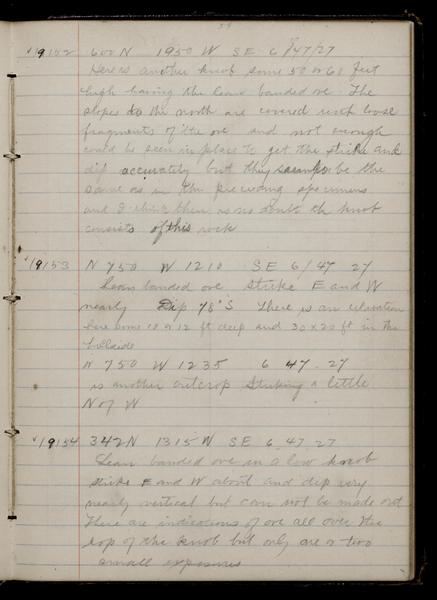 √19152 600 N 1950 W SE 6/47/27
Here is another knob some 50 or 60 feet
high having the lean banded ore. The
slopes to the north are covered with loose
fragments of the ore and not enough
could be seen in place to get the strike and
dip accurately but they be the
same as in the preceeding specimens
and I think there is no doubt the knob
consists of this rock
√19153 N 750 W 1210 SE 6/47 27
Lean banded ore strike E and W
nearly Dip 78° S There is an excavation
here some 10 or 12 ft deep and 30 x 20 ft in the
hillside
N 750 W 1235 6 47-27
is another outcrop Striking a little
N of W
√19154 342 N 1315 W SE 6 47 27
Lean banded ore in a low knob
strike E and W about and dip very
nearly vertical but can not be made out
There are indications of ore all over the
top of the knob but only one or two
small exposures